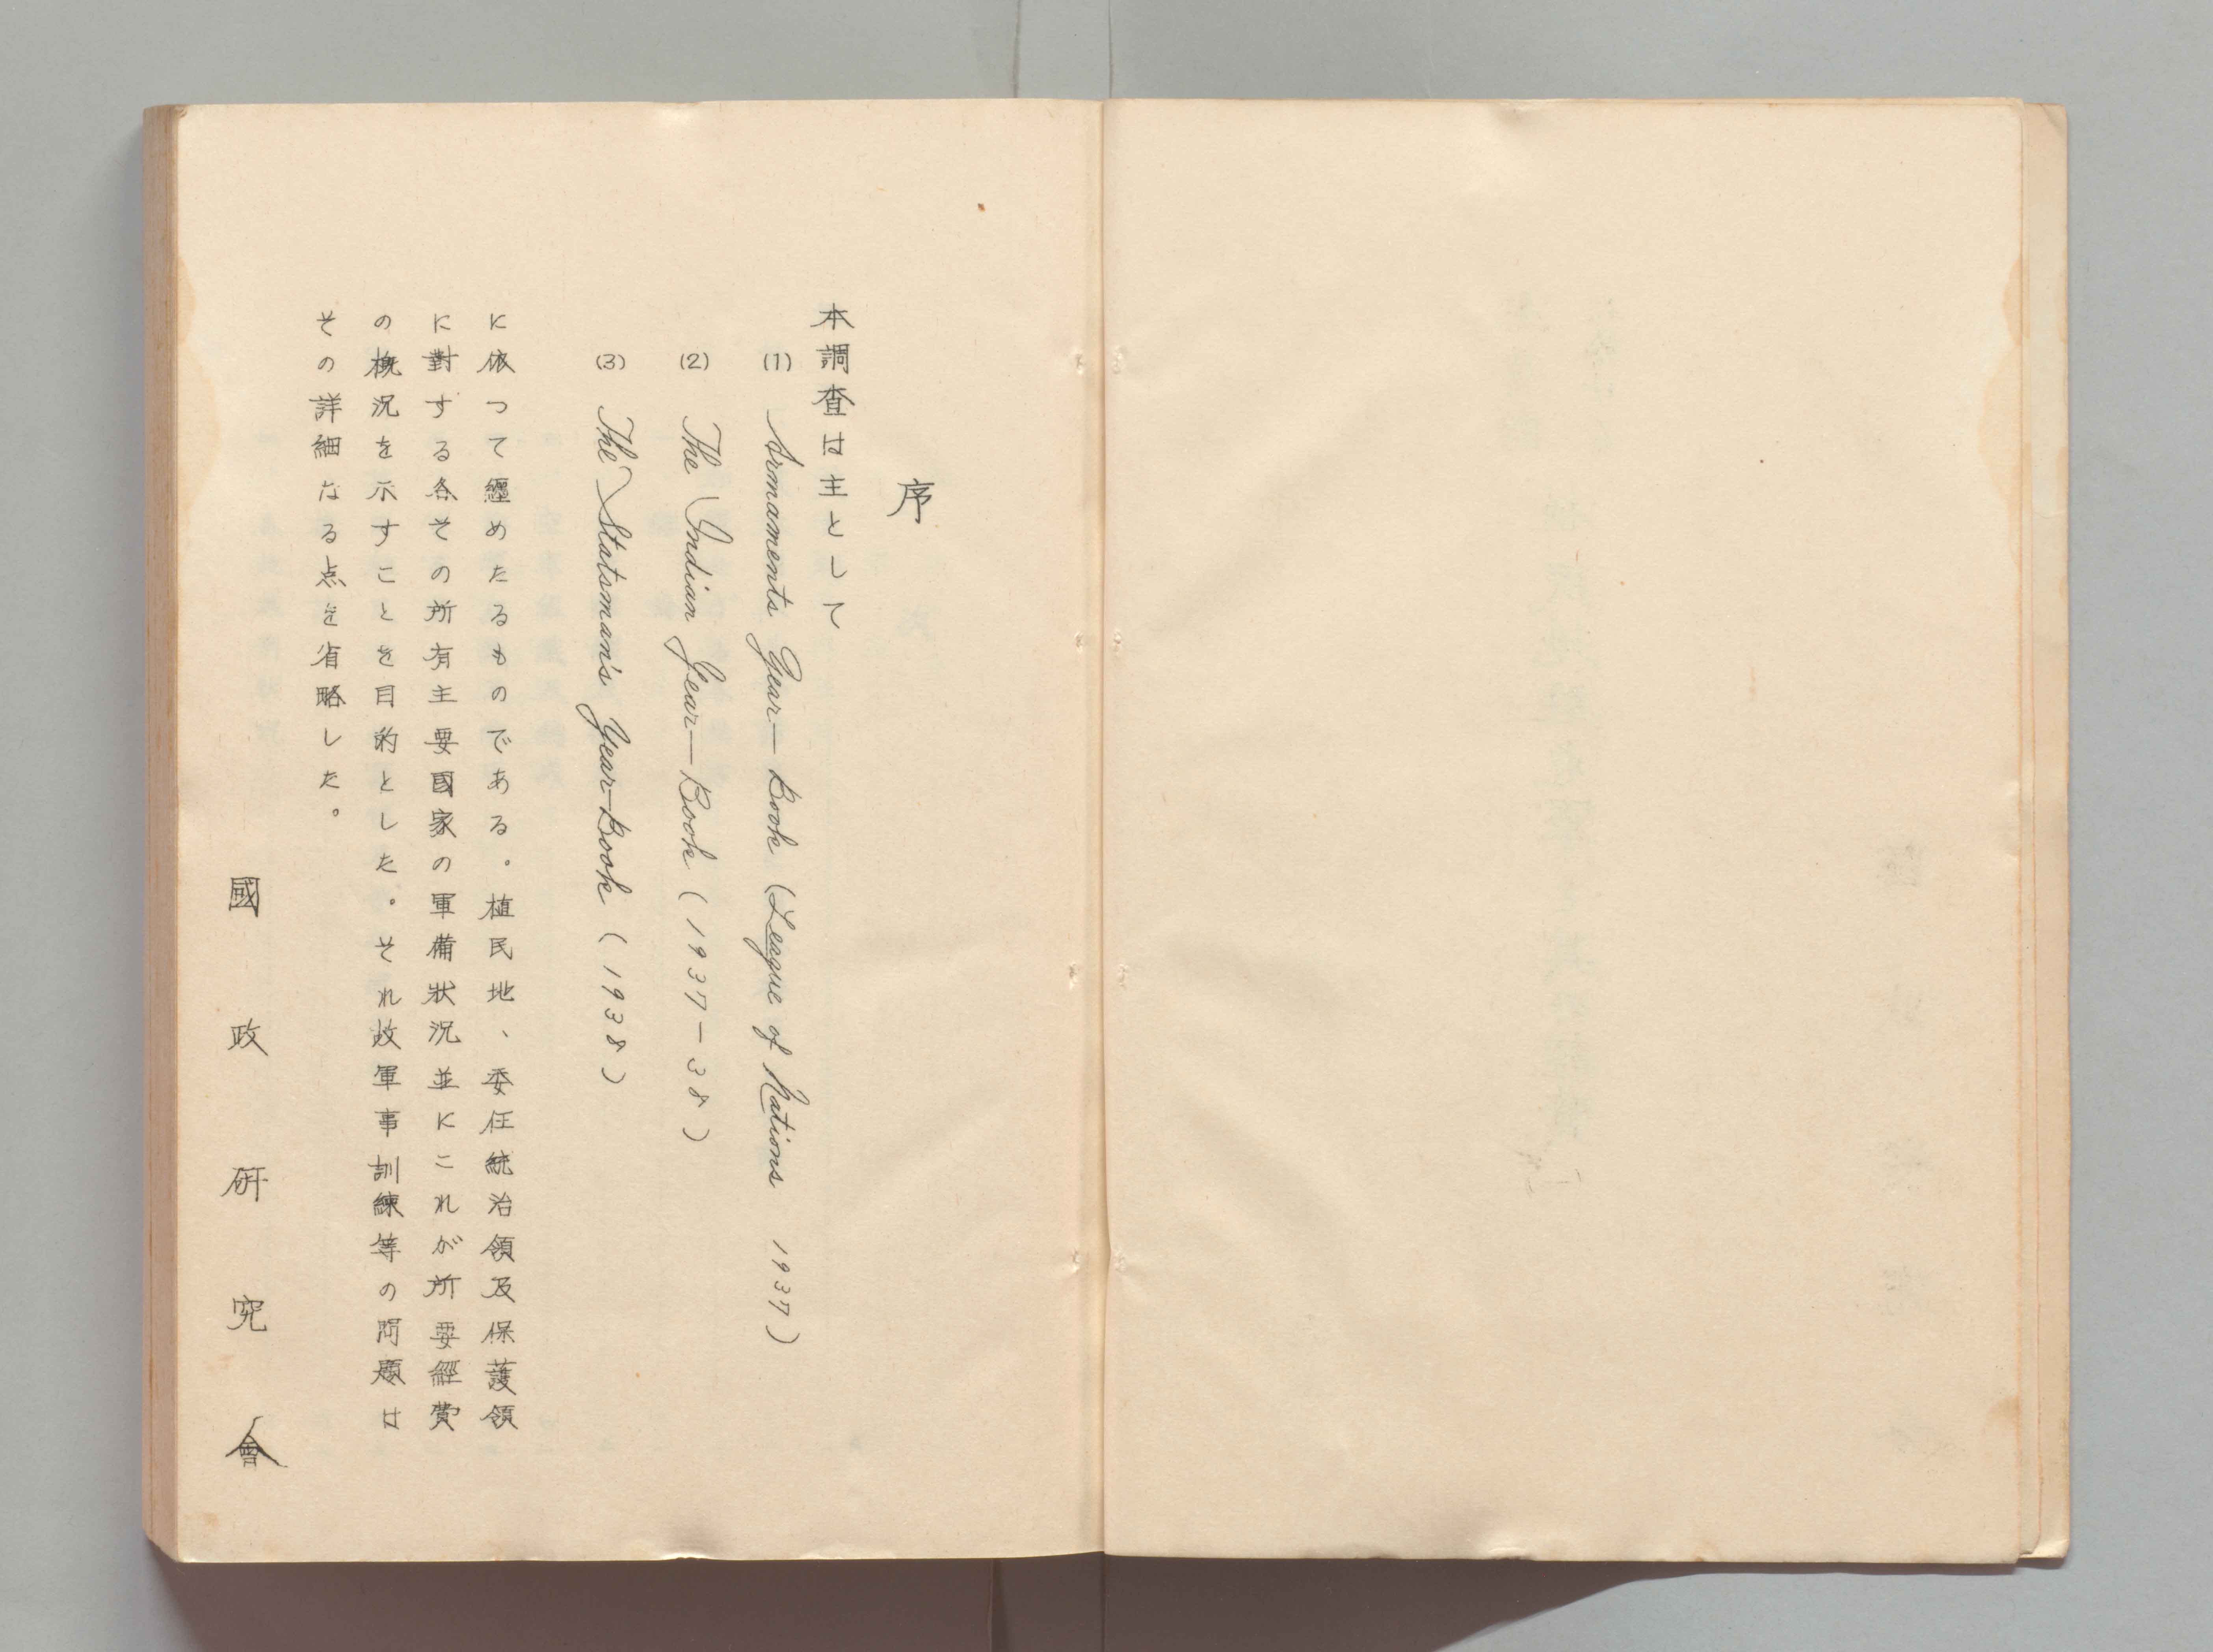 序
本調査は主として
(1) Armaments Year—Book (League of Nations 1937)
(2) The Indian Year—Book (1937-38)
(3) The Statsman's Year-Book (1938)
に依って纒めたるものである。植民地、委任統治領及保護領
に對する各その所有主要國家の軍備狀況並にこれが所要經費
の概況を示すことを目的とした。それ故軍事訓練等の問題は
その詳細なる点を省略した。
國政研究會